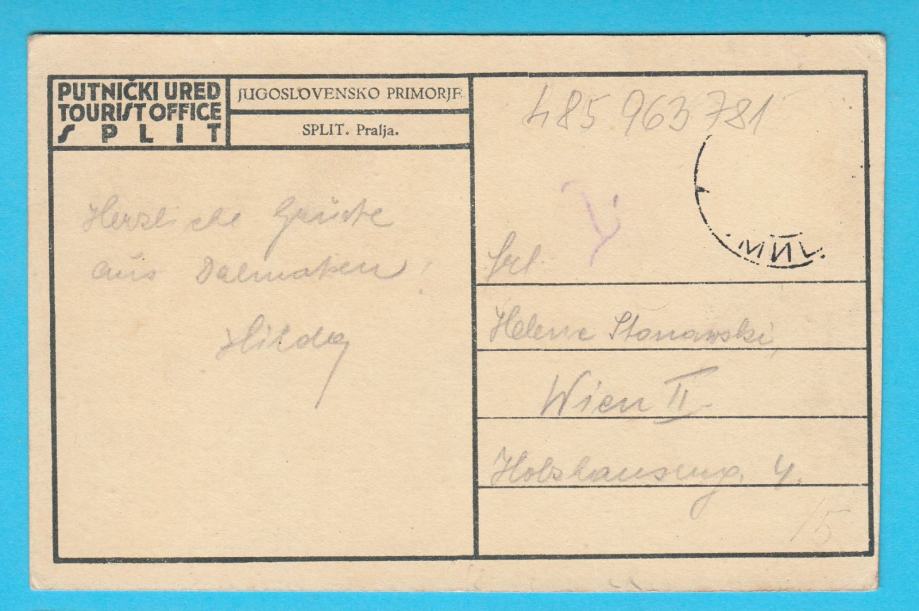 PUTNIČKI URED
TOURIST OFFICE
SPLIT
JUGOSLOVENSKO PRIMORJE
SPLIT. Pralja.
485 963 781
Herzliche Grüße
aus Dalmatien!
Hilda
Frl.
Helene
Wien II
4.
/5